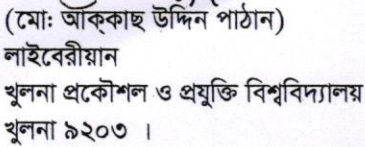 (মোঃ আক্কাছ উদ্দিন পাঠান)
লাইবেরীয়ান
খুলনা প্রকৌশল ও প্রযুক্তি বিশ্ববিদ্যালয়
খুলনা ৯২০৩ ।